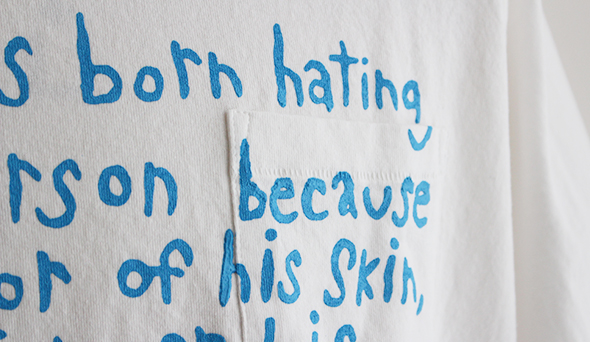 s born hating
rson because
or of his skin,
his